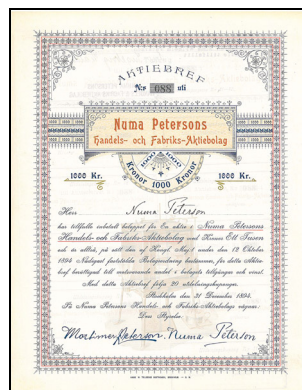 AKTIEBREF
N:r 088 uti
Numa Petersons
Handels- och Fabriks-Aktiebolag
1000 1000
1000 Kr. Kronor 1000 Kronor 1000 Kr.
Herr Numa Peterson
har tillfullo inbetalt beloppet för En aktie i Numa Petersons
Handels- och Fabriks-Aktiebolag med Kronor Ett Tusen
och är alltså, på sätt den af Kongl. Maj:t under den 12 Oktober
1894 Nådigast fastställda Bolagsordning bestämmer, för detta Aktie-
bref berättigad till motsvarande andel i bolagets tillgångar och vinst.
Med detta Aktiebref följa 20 utdelningskuponger.
Stockholm den 31 December 1894.
På Numa Petersons Handels- och Fabriks-Aktiebolags vägnar:
Dess Styrelse:
Mortimer Peterson. Numa Peterson